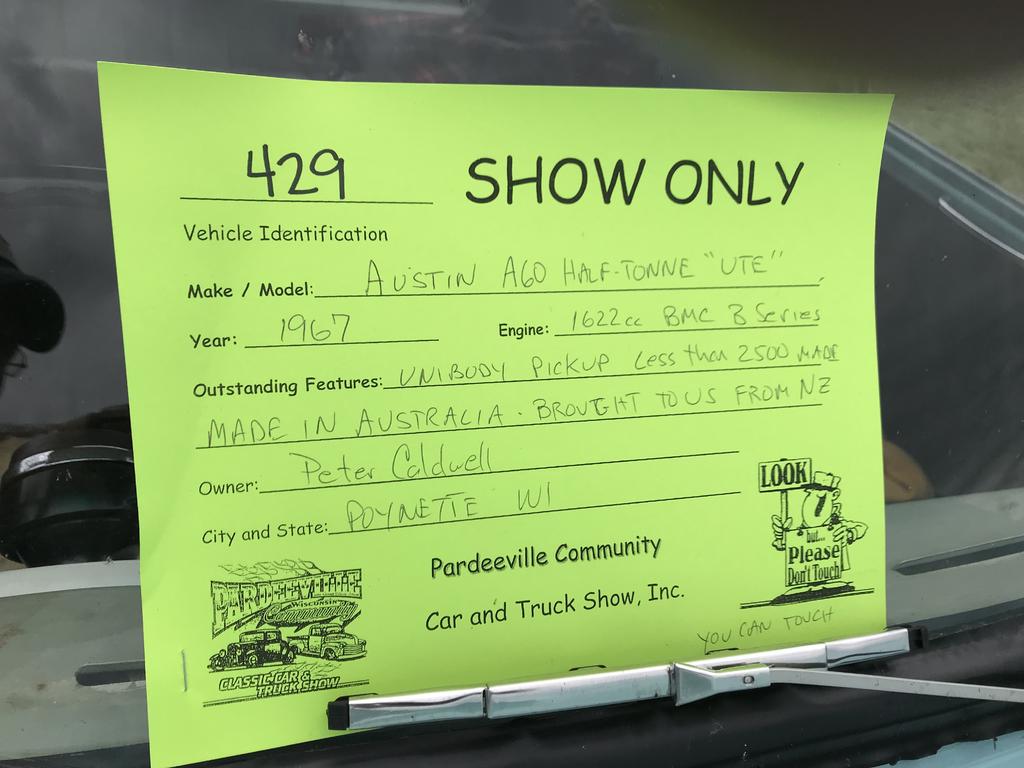 429 SHOW ONLY
Vehicle Identification
Make / Model: AUSTIN A60 HALF-TONNE "UTE"
Year: 1967 Engine: 1622cc BMC B Series
Outstanding Features: UNIBODY PICKUP Less than 2500 MADE
MADE IN AUSTRALIA. BROUGHT TO US FROM NZ
Owner: Peter Caldwell
City and State: POYNETTE WI
LOOK
but...
Please
Don't Touch!
Pardeeville Community
Car and Truck Show, Inc.
YOU CAN TOUCH
PARDEEVILLE
WISCONSIN
Community
CLASSIC CAR &
TRUCK SHOW